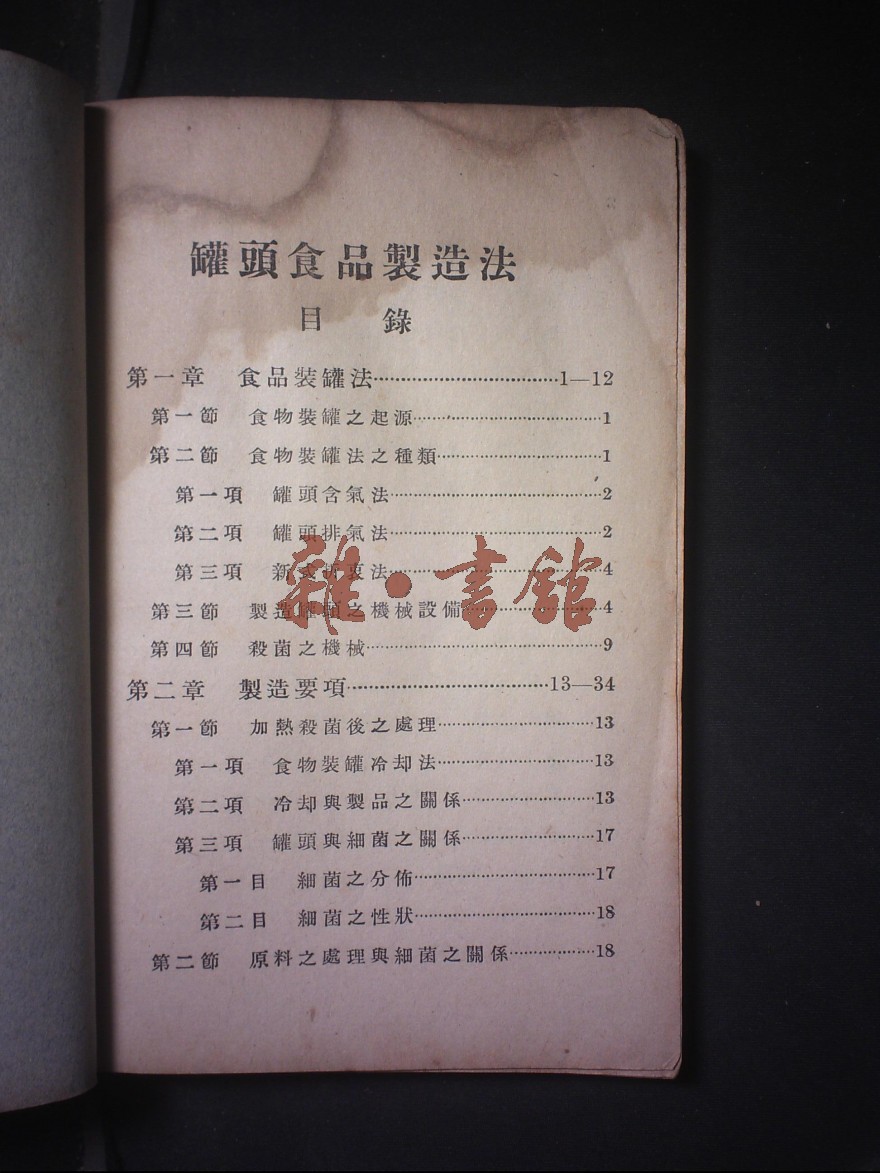 罐頭食品製造法
目錄
第一章 食品裝罐法…………1—12
第一節 食物裝罐之起源…………1
第二節 食物裝罐法之種類…………1
第一項 罐頭含氣法…………2
第二項 罐頭排氣法…………2
第三項 新式折衷法…………4
第三節 製造罐頭之機械設備…………4
第四節 殺菌之機械…………9
第二章 製造要項…………13—34
第一節 加熱殺菌後之處理…………13
第一項 食物裝罐冷却法…………13
第二項 冷却與製品之關係…………13
第三項 罐頭與細菌之關係…………17
第一目 細菌之分佈…………17
第二目 細菌之性狀…………18
第二節 原料之處理與細菌之關係…………18
雜·書館